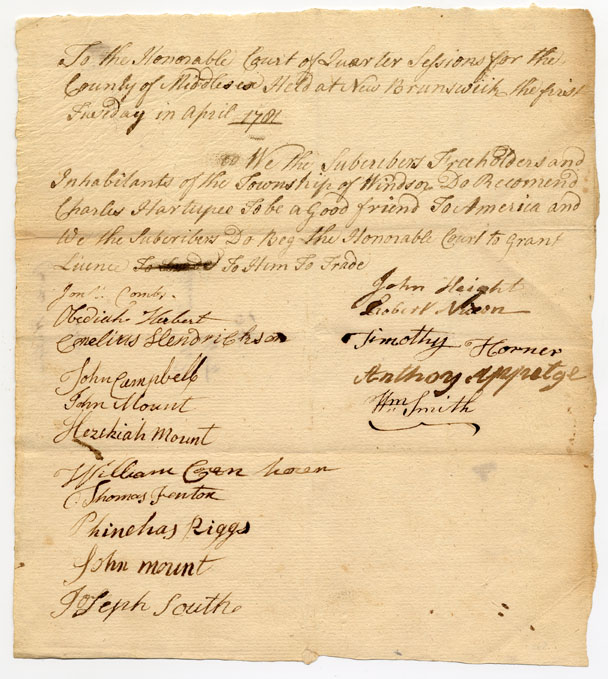 To the Honorable Court of Quarter Sessions for the
County of Middlesex Held at New Brunswick the first
Tuesday in April 1781
We the Subcribers Freeholders and
Inhabitants of the Township of Windsor Do Recomend
Charles Hartupee To be a Good friend To America and
We the Subcribers Do Beg the Honorable Court to Grant
Licence To Him To Trade
John Height
Robert Nixon
Timothy Horner
Anthoy Appelge
Wm Smith
Jona Combs
Obediah Herbert
Cnelius Hendrickson
John Campbell
John Mount
Hezekiah Mount
William
Thomas Fenton
Phinehas Riggs
John Mount
Joseph South